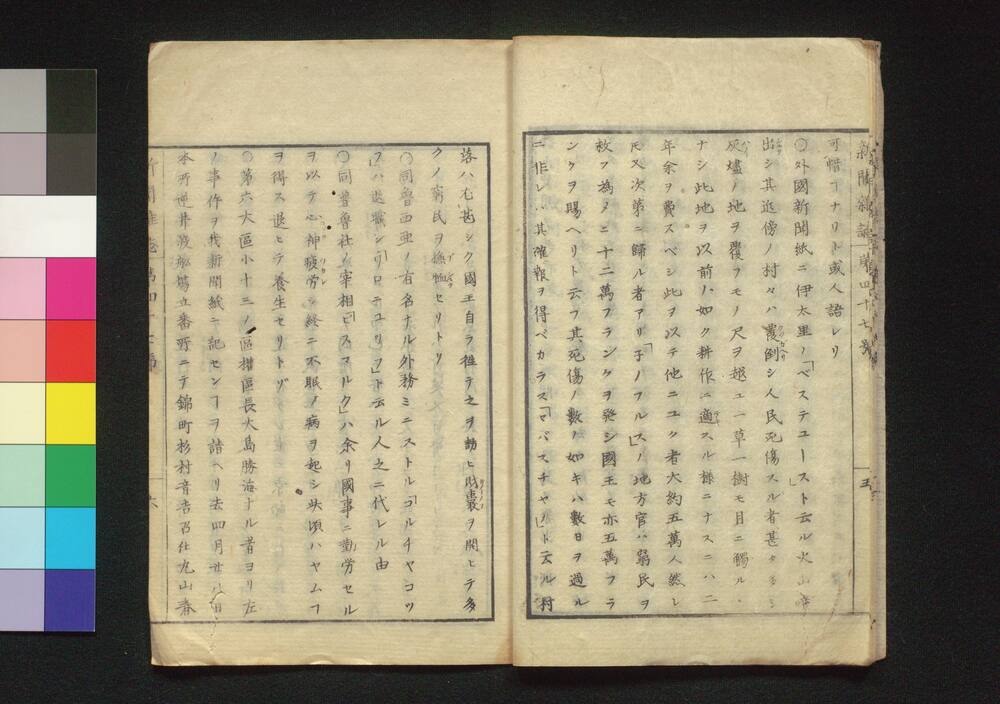 新聞雜誌第四十七號
五
可惜ヿナリト或人語レリ
〇外國新聞紙ニ伊太里ノ「ベステユースト云ル火山噴
出シ其近傍ノ村々ハ覆倒シ人民死傷スル者甚タ多シ
灰燼ノ地ヲ覆フモノ尺ヲ越ユ一草一樹モ目ニ觸ル、
ナシ此地ヲ以前ノ如ク耕作ニ適スル樣ニナスニハ二
年余ヲ費スベシ此ヲ以テ他ニユク者大約五萬人然レ
𪜈又次第ニ歸ル者アリ「子ノフルス」ノ地方官ハ窮民ヲ
救フ為メニ十二萬フランクヲ發シ國王モ亦五萬フラ
ンクヲ賜ヘリト云フ其死傷ノ數ノ如キハ數日ヲ過ル
ニ非レハ其確報ヲ得ベカラス「マバスチヤ」ト云ル村
落ハ尤甚シク國王自ラ徃テ之ヲ訪ヒ財囊ヲ開ヒテ多
クノ窮民ヲ撫恤セリトソ
〇同魯西亜ノ有名ナル外務ミニストル「ゴルチヤコツ
フ」ハ退職シ「リロテユリフ」ト云ル人之ニ代レル由
〇同普魯社ノ宰相「ビスマルク」ハ余リ國事ニ勤労セル
ヲ以テ心神疲労シ終ニ不眠ノ病ヲ起シ此頃ハヤムフ
ヲ得ス退ヒテ養生セリトゾ
〇第六大區小十三ノ區摺區長大島勝海ナル者ヨリ左
ノ事件ヲ我新聞紙ニ記センヿヲ請ヘリ去四月廿八日
本所逆井渡船場立番所ニテ錦町杉村音吉召仕丸山春
新聞雜誌第四十七號
六